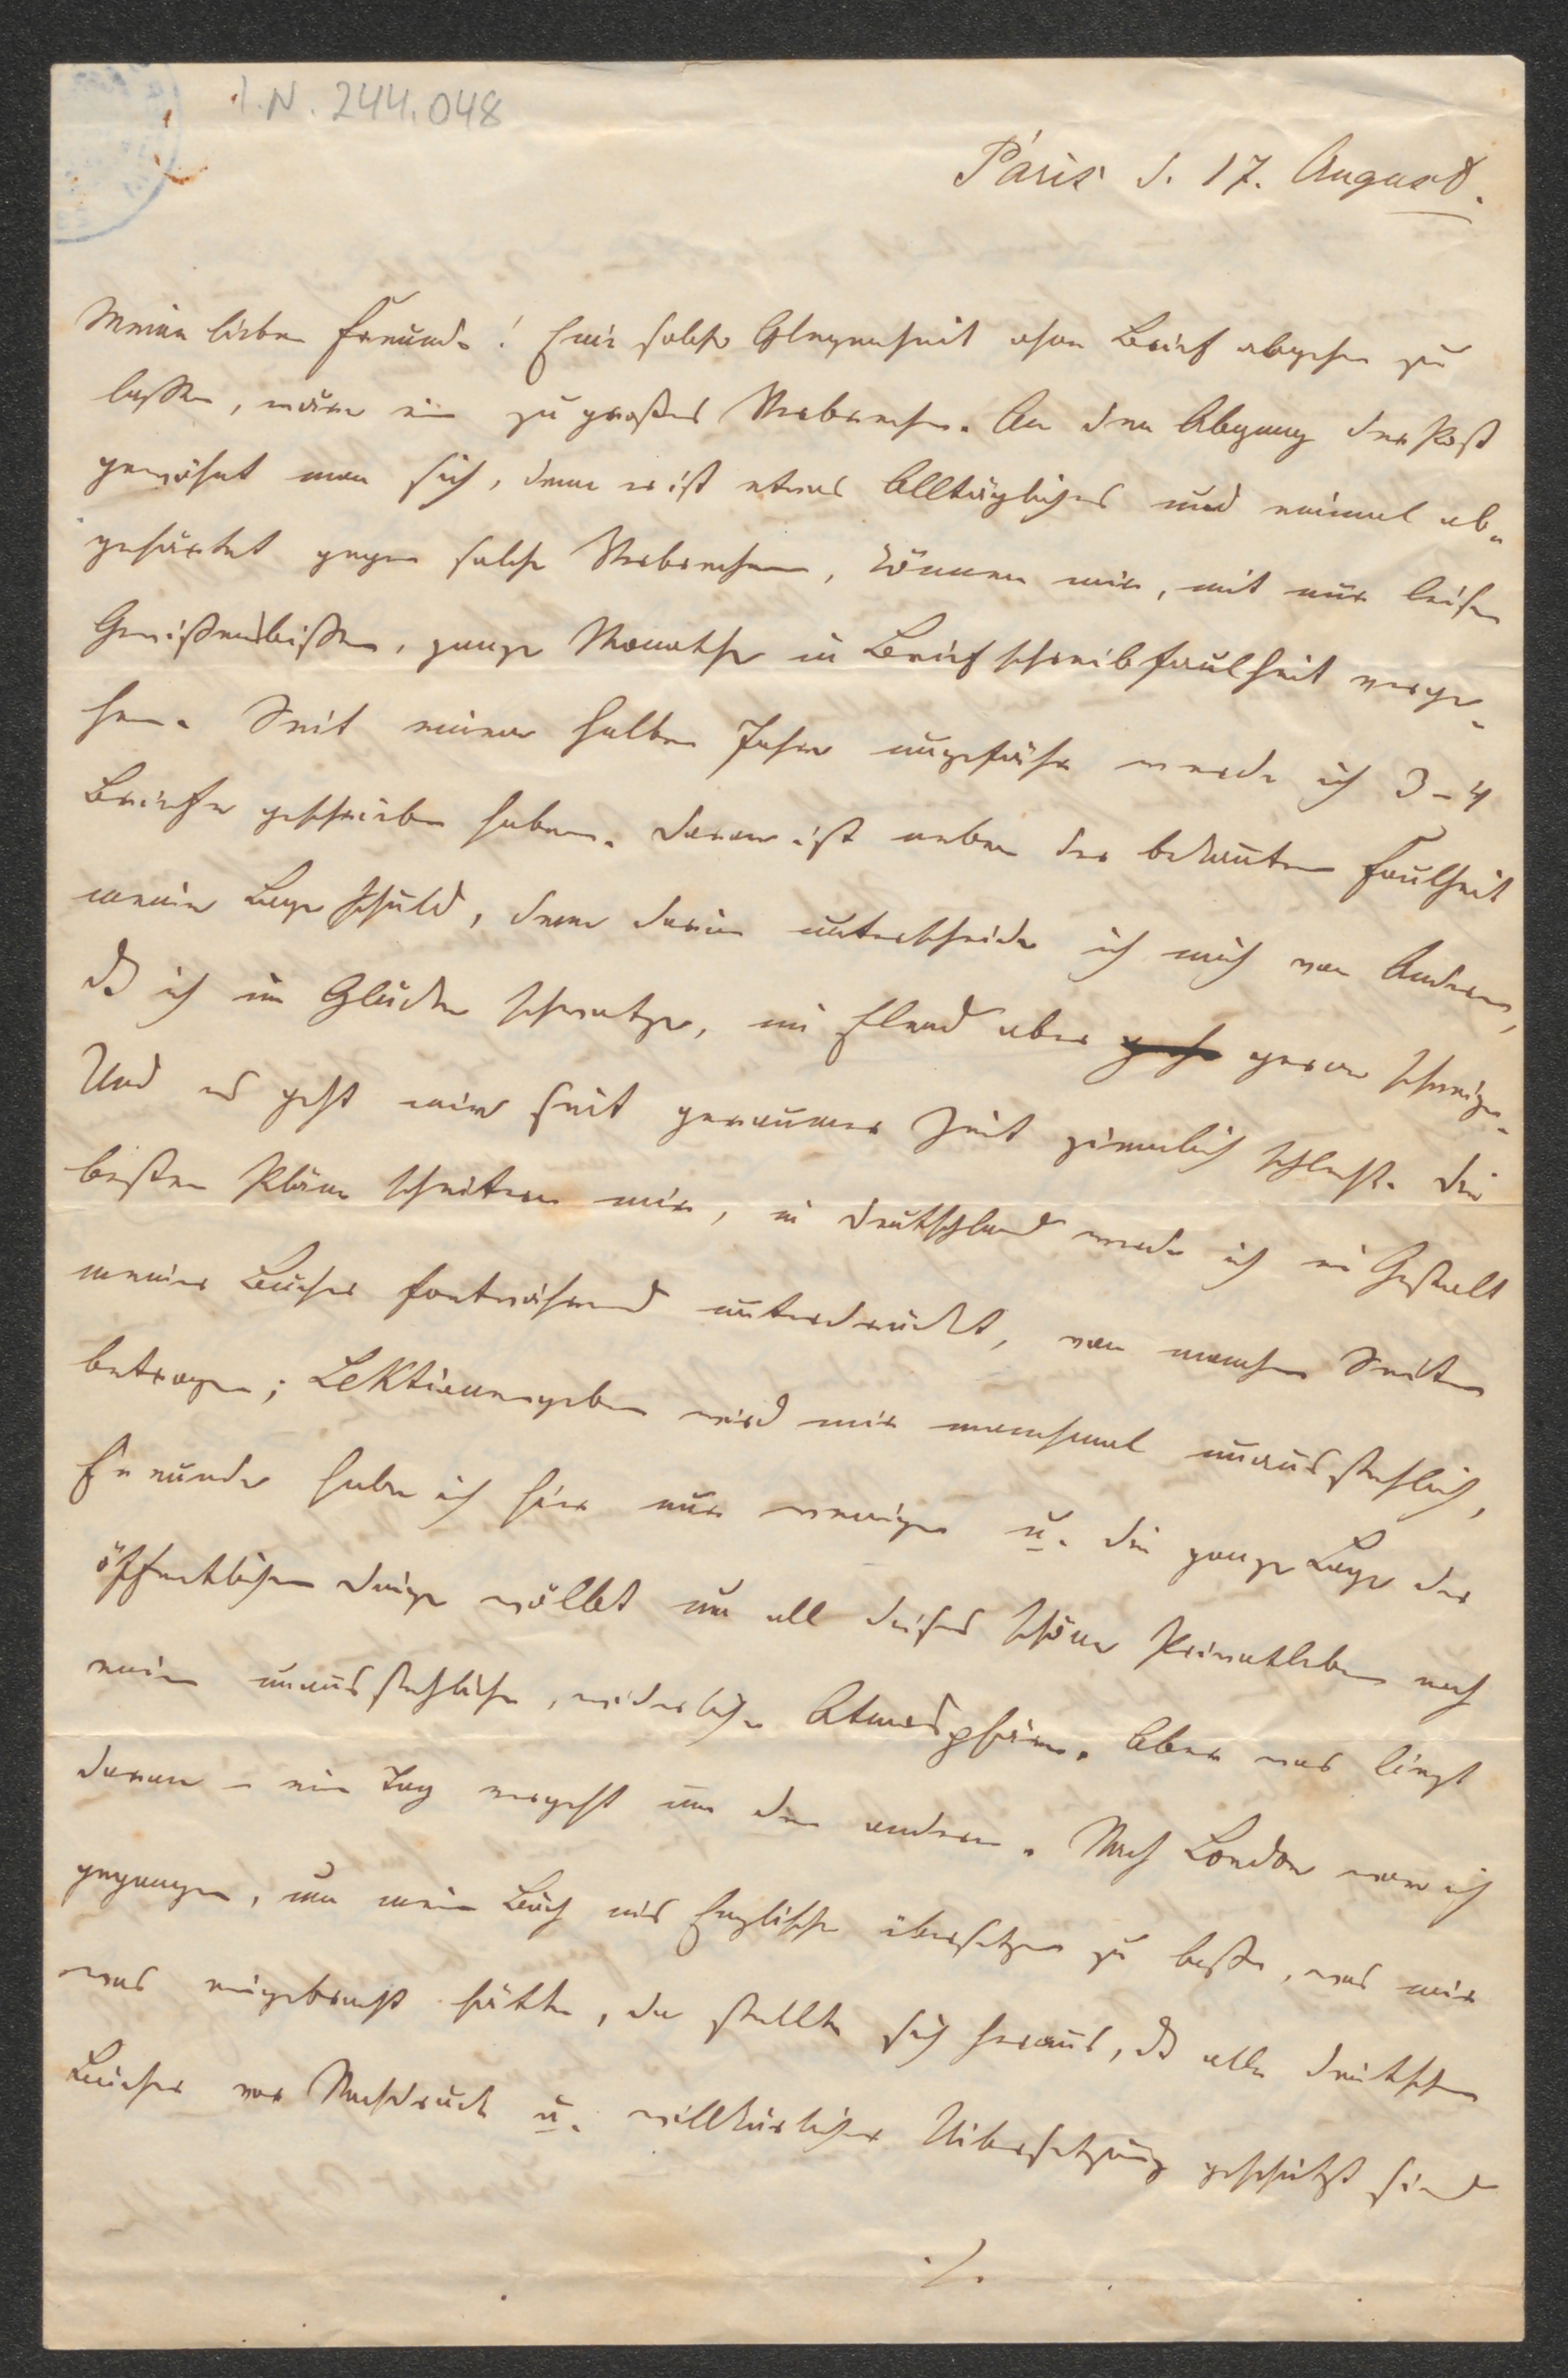 I.N. 244.048
Paris d. 17. August.
Meine lieben Freunde! Eine solche Gelegenheit ohne Brief abgehen zu
lassen, wäre ein zu großes Verbrechen. An den Abgang der Post
gewöhnt man sich, denn er ist etwas Alltägliches und einmal ab-
gehärtet gegen solche Verbrechen, können wir, mit nur leisen
Gewißensbißen, ganze Monathe in Briefschreibfaulheit verge-
hen. Seit einem halben Jahre ungefähr werde ich 3–4
Briefe geschrieben haben. Daran ist neben der bekannten Faulheit
meine Lage schuld, denn darin unterscheide ich mich von Anderen,
dß ich im Glücke schwatze, im Elend aber gerne schweige.
Und es geht mir seit geraumer Zeit ziemlich schlecht. Die
besten Pläne scheitern mir, in Deutschland werde ich in Gestalt
meines Buches fortwährend unterdrückt, von manchen Seiten
betrogen; Lektionengeben wird mir manchmal unausstehlich,
Freunde habe ich hier nur wenige u. die ganze Lage der
öffentlichen Dinge wölbt um all dieses schöne Privatleben noch
eine unausstehliche, widerliche Atmosphäre. Aber was liegt
daran – ein Tag vergeht um den andern. Nach London war ich
gegangen, um mein Buch ins Englische übersetzen zu lassen, was mir
was eingebracht hätte, da stellte sich heraus, dß alle deutschen
Bücher vor Nachdruck u. willkürlicher Uibersetzung geschützt sind
./.